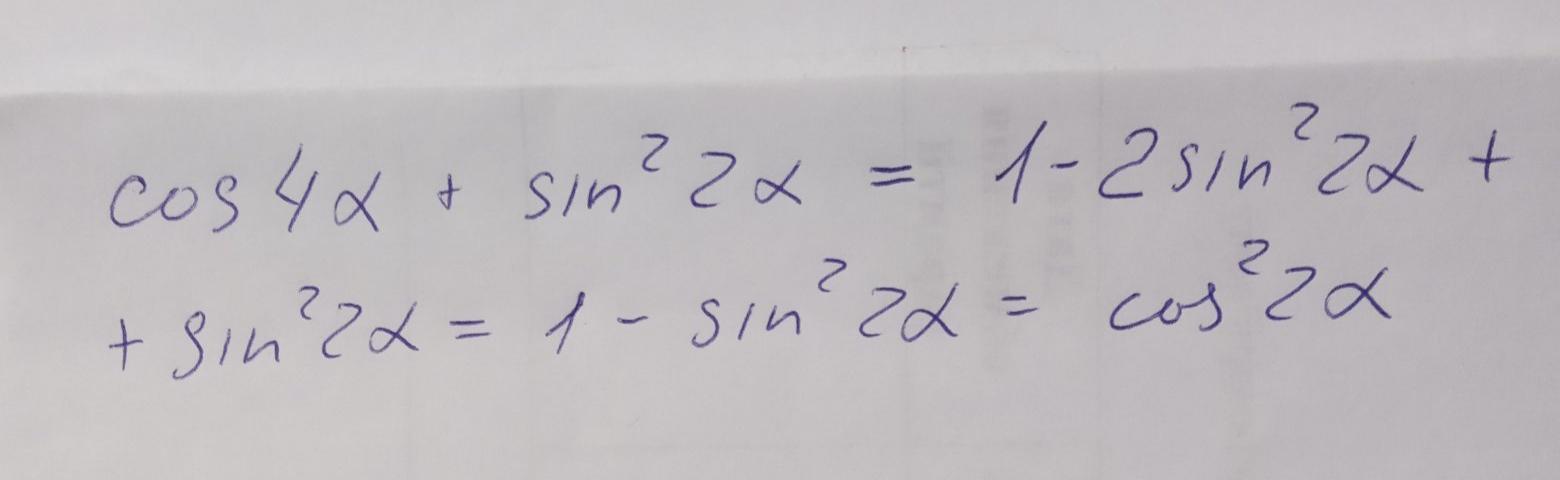 cos4α + sin²2α = 1-2sin²2α +
+ sin²2α = 1 - sin²2α = cos²2α